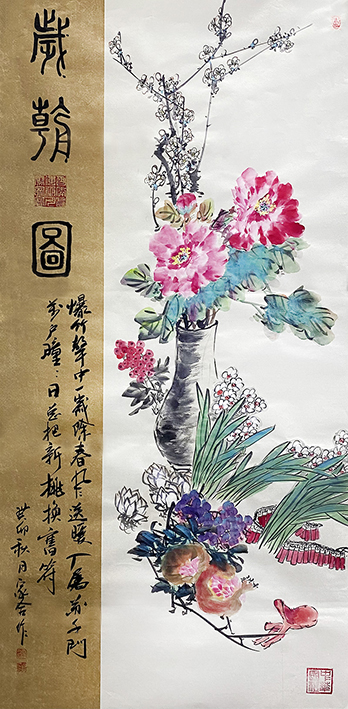 歲朝圖
爆竹聲中一歲除春風送暖入屠蘇千門
萬戶曈曈日總把新桃換舊符
癸卯秋月 家合作